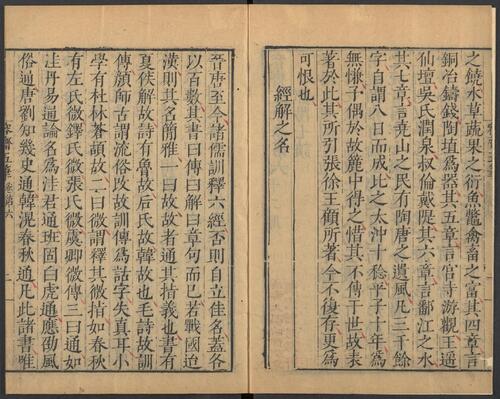 之饒水草蔬果之衍魚鼈禽畜之富其四章言
銅冶鑄錢陶埴爲器其五章言宮寺游觀王遥
仙壇吳氏潤泉叔倫戴隄其六章言鄱江之水
其七章言堯山之民有陶唐之遺風凡三千餘
字自謂八日而成比之太沖十稔平子十年爲
無慊予偶於故簏中得之惜其不傳於世故表
著於此其所引張徐王顧所著今不復存更爲
可恨也
經解之名
晉唐至今諸儒訓釋六經否則自立佳名蓋各
以百數其書曰傳曰解曰章句而已若戰國迨
漢則其名簡雅一曰故故者通其指義也書有
夏侯解故詩有魯故后氏故韓故也毛詩故訓
傳顏師古謂流俗改故訓傳爲詁字失真耳小
學有杜林蒼頡故二曰微謂釋其微指如春秋
有左氏微鐸氏微張氏微虞卿微傳三曰通如
洼丹易通論名爲洼君通班固白虎通應劭風
俗通唐劉知幾史通韓滉春秋通凡此諸書唯
容齋五筆 卷第六